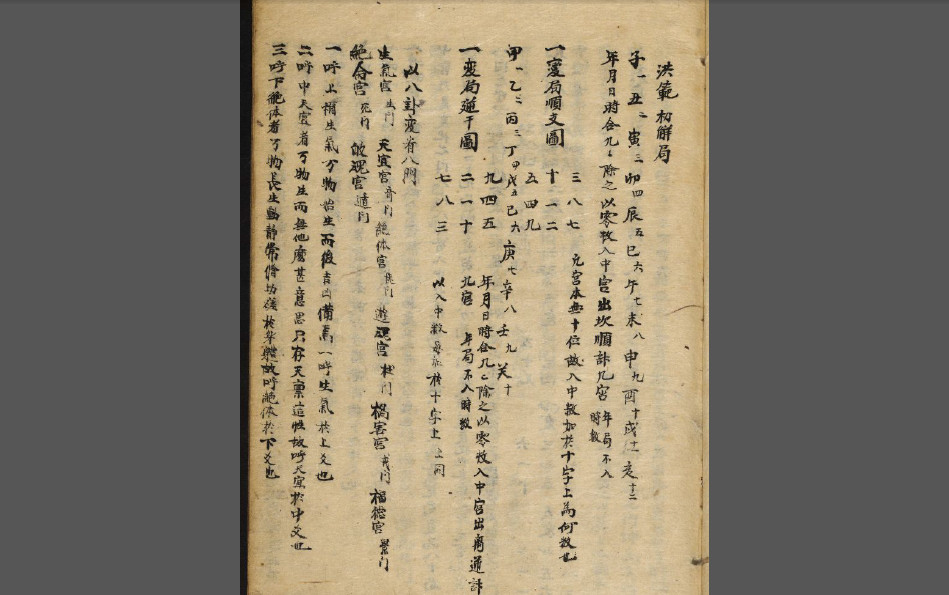 洪範初解局
子一 丑二 寅三 卯四 辰五 巳六 午七 未八 申九 酉十 戌十一 亥十二
年月日時合九〻除之以零数入中宮出坎順計九宮 年局不入時数
一変局順文圖
三八七
十一二
五四九
九宮本無十位故入中数加於十字上為何数也
甲一 乙二 丙三 丁四 戊五 己六 庚七 辛八 壬九 癸十
一変局逆干圖
九四五
二一十
七八三
年月日時合九〻除之以零数入中宮出离逆計
九宮 年局不入時数
以入中数 於十字上
以八卦变着八門
生氣宮 生門 天宜宮 絶体宮 遊魂宮 杜門 禍害宮 福德宮 景門
絶命宮 死門 歸魂宮
一呼上爻生氣万物始生而後吉凶備焉一呼生氣於上爻也
二呼中天宜者万物生而無他意思只存天稟這性故呼天宜於中爻也
三呼下絶体者万物長生動静常 故呼絶体於下爻也